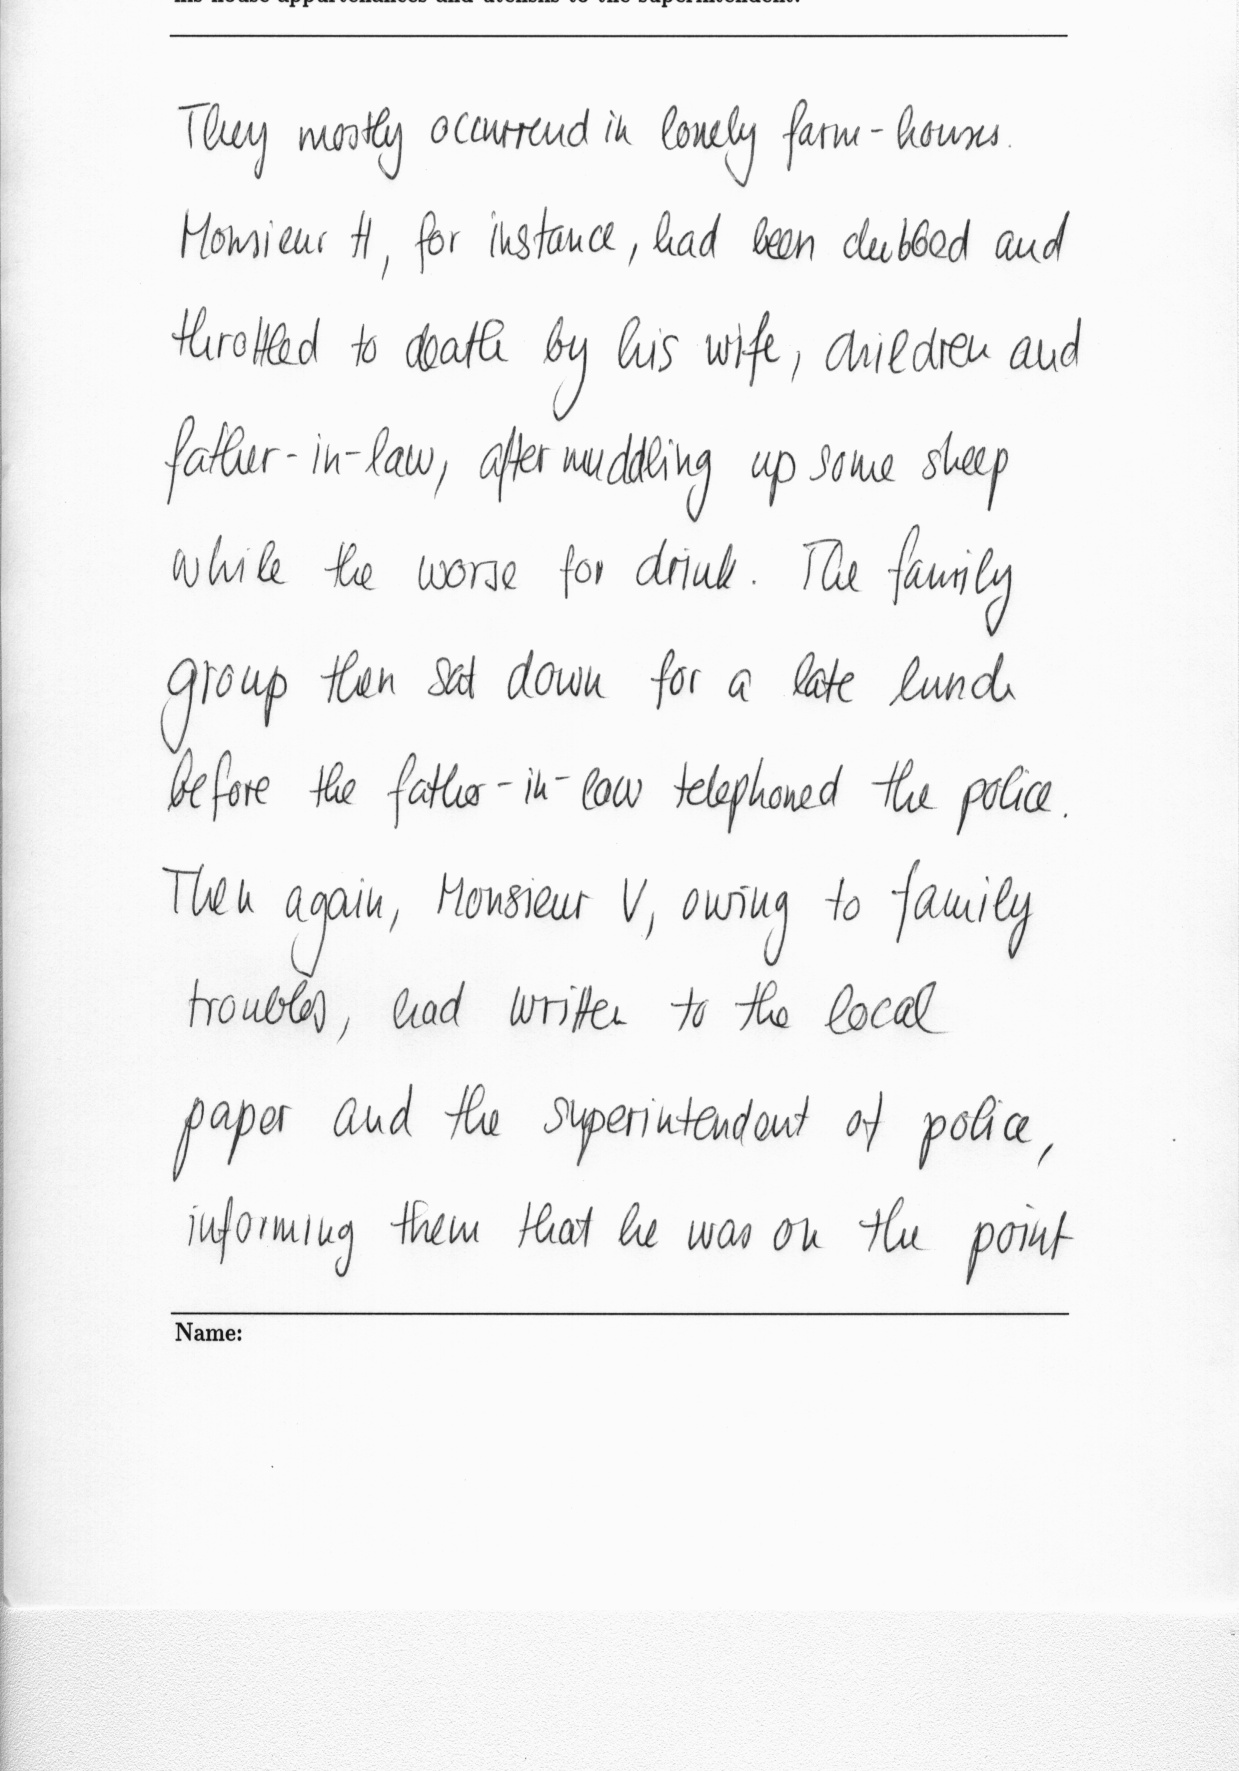 his house appurtenances and utensils to the superintendent.
They mostly occurrend in lonely farm-houses.
Monsieur H, for instance, had been clubbed and
throttled to death by his wife, children and
father-in-law, after muddling up some sheep
while the worse for drink. The family
group then sat down for a late lunch
before the father-in-law telephoned the police.
Then again, Monsieur V, owing to family
troubles, had written to the local
paper and the superintendent of police,
informing them that he was on the point
Name: